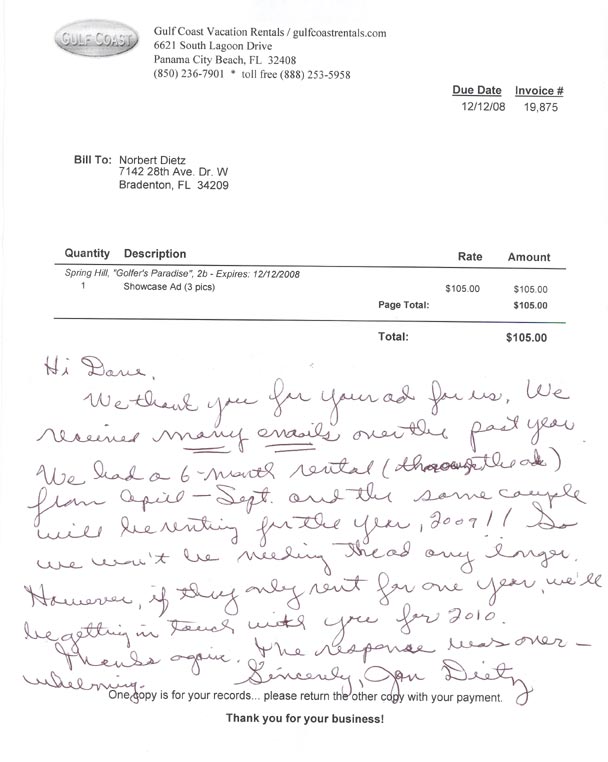 GULF COAST
Gulf Coast Vacation Rentals / gulfcoastrentals.com
6621 South Lagoon Drive
Panama City Beach, FL 32408
(850) 236-7901 * toll free (888) 253-5958
Due Date Invoice #
12/12/08 19,875
Bill To: Norbert Dietz
7142 28th Ave. Dr. W
Bradenton, FL 34209
Quantity Description Rate Amount
Spring Hill, "Golfer's Paradise", 2b - Expires: 12/12/2008
1 Showcase Ad (3 pics) $105.00 $105.00
Page Total: $105.00
Total: $105.00
Hi Dave,
We thank you for your ad for us. We
received many emails over the past year
We had a 6-month rental (through the ad)
from April - Sept. and the same couple
will be renting for the year, 2009!! So
we won't be needing the ad any longer.
However, if they only rent for one year, we'll
be getting in touch with you for 2010.
Thanks again. The response was over-
whelming. Sincerely, Jan Dietz
One copy is for your records... please return the other copy with your payment.
Thank you for your business!